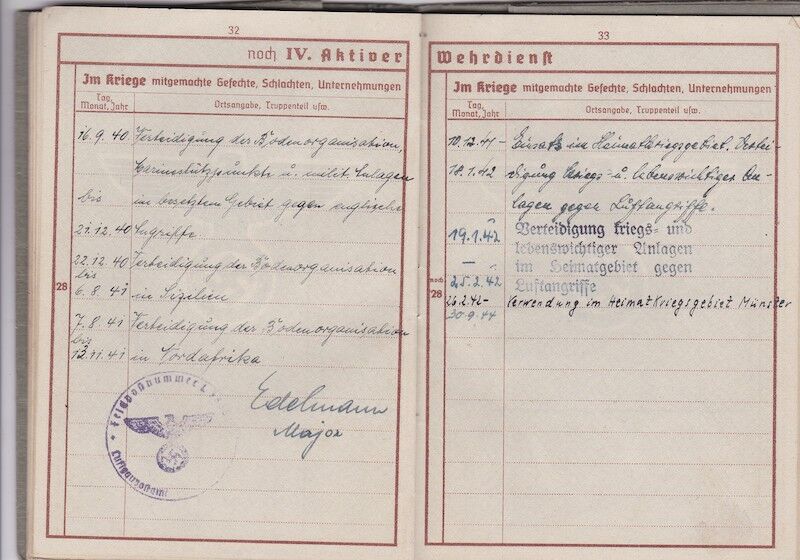 32
noch IV. Aktiver
Im Kriege mitgemachte Gefechte, Schlachten, Unternehmungen
Tag, Monat, Jahr
Ortsangabe, Truppenteil usw.
16.9.40 Verteidigung der Bodenorganisation,
Marinestützpunkte u. milit. Anlagen
bis im besetzten Gebiet gegen englische
21.12.40 Angriffe.
22.12.40 Verteidigung der Bodenorganisation
bis
6.8.41 in Sizilien
28
7.8.41 Verteidigung der Bodenorganisation
bis
13.11.41 in Nordafrika
Feldpostnummer L
Luftgaupostamt
Edelmann
Major
33
Wehrdienst
Im Kriege mitgemachte Gefechte, Schlachten, Unternehmungen
Tag, Monat, Jahr
Ortsangabe, Truppenteil usw.
10.12.41- Einsatz im Heimatkriegsgebiet. Vertei-
18.1.42 digung kriegs- u. lebenswichtiger An-
lagen gegen Luftangriffe.
19.1.42 Verteidigung kriegs- und
lebenswichtiger Anlagen
— im Heimatgebiet gegen
25.2.42 Luftangriffe
noch 28
26.2.42- Verwendung im Heimatkriegsgebiet Münster
30.9.44